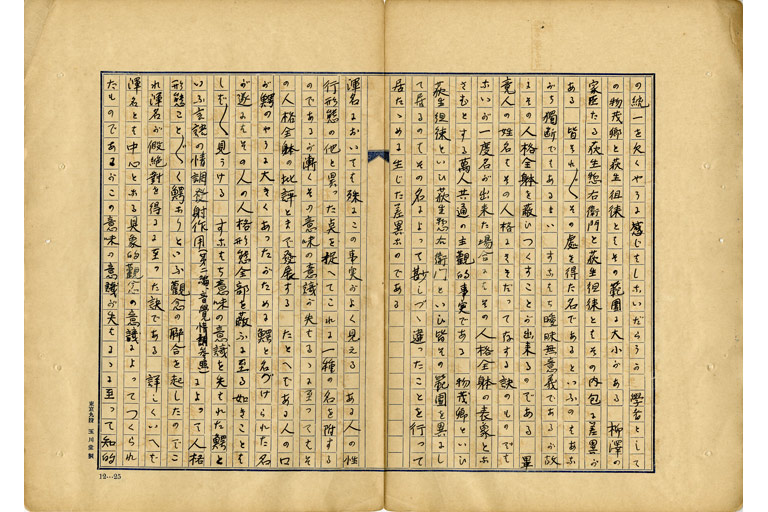 の統一を欠くやうな感じをしないだらうか　学者として
の物茂卿と荻生徂徠とその範囲に大小がある　柳澤の
家臣たる荻生惣右衛門と荻生徂徠とはその内包に差異が
ある　皆それ〲その処を得た名であるといふのもあな
がち独断でもあるまい　すなはち曖昧無意義であるが故
よその人格全躰を蔽ひつくすことが出来るのである　畢
竟人の姓名はその人格にそぞつて存する訳のものでも
ないが一度名が出来た場合にはその人格全躰の表象とな
さむとする萬人共通の主観的事実である　物茂卿といひ
荻生徂徠といひ荻生惣右衛門といひ皆その範囲を異にし
て居るのはその名によつて尠しづゝ違つたことを行つて
居たゝめに生じた差異なのである
渾名においても殊にこの事実がよく見える　ある人の性
行形態の他と異つた点を捉へてこれに一種の名を附する
のであるが漸くその意味の意識が失せるゝに至つてもそ
の人格全躰の批評とまで発展する　たとへである人の口
が鰐のやうに大きくあつたがために鰐と名づけられた名
が遂にはその人の人格形態全部を蔽ふに至る如きことも
しば〲見うける　すなはち意味の意識を失せれた鰐と
いふ言語の情調発射作用(第二編、音覚情調参照)によつて人格
形態こと〲く鰐なりといふ観念の聯合を起したのでこ
れ渾名が仮絶対を得るに至つた訳である　詳しくいへば
渾名とは中心となる具象的観念の意識によつてつくられ
たものであるがこの意味の意識が失せるゝに至つて知的
12…25
東京九段　玉川堂製